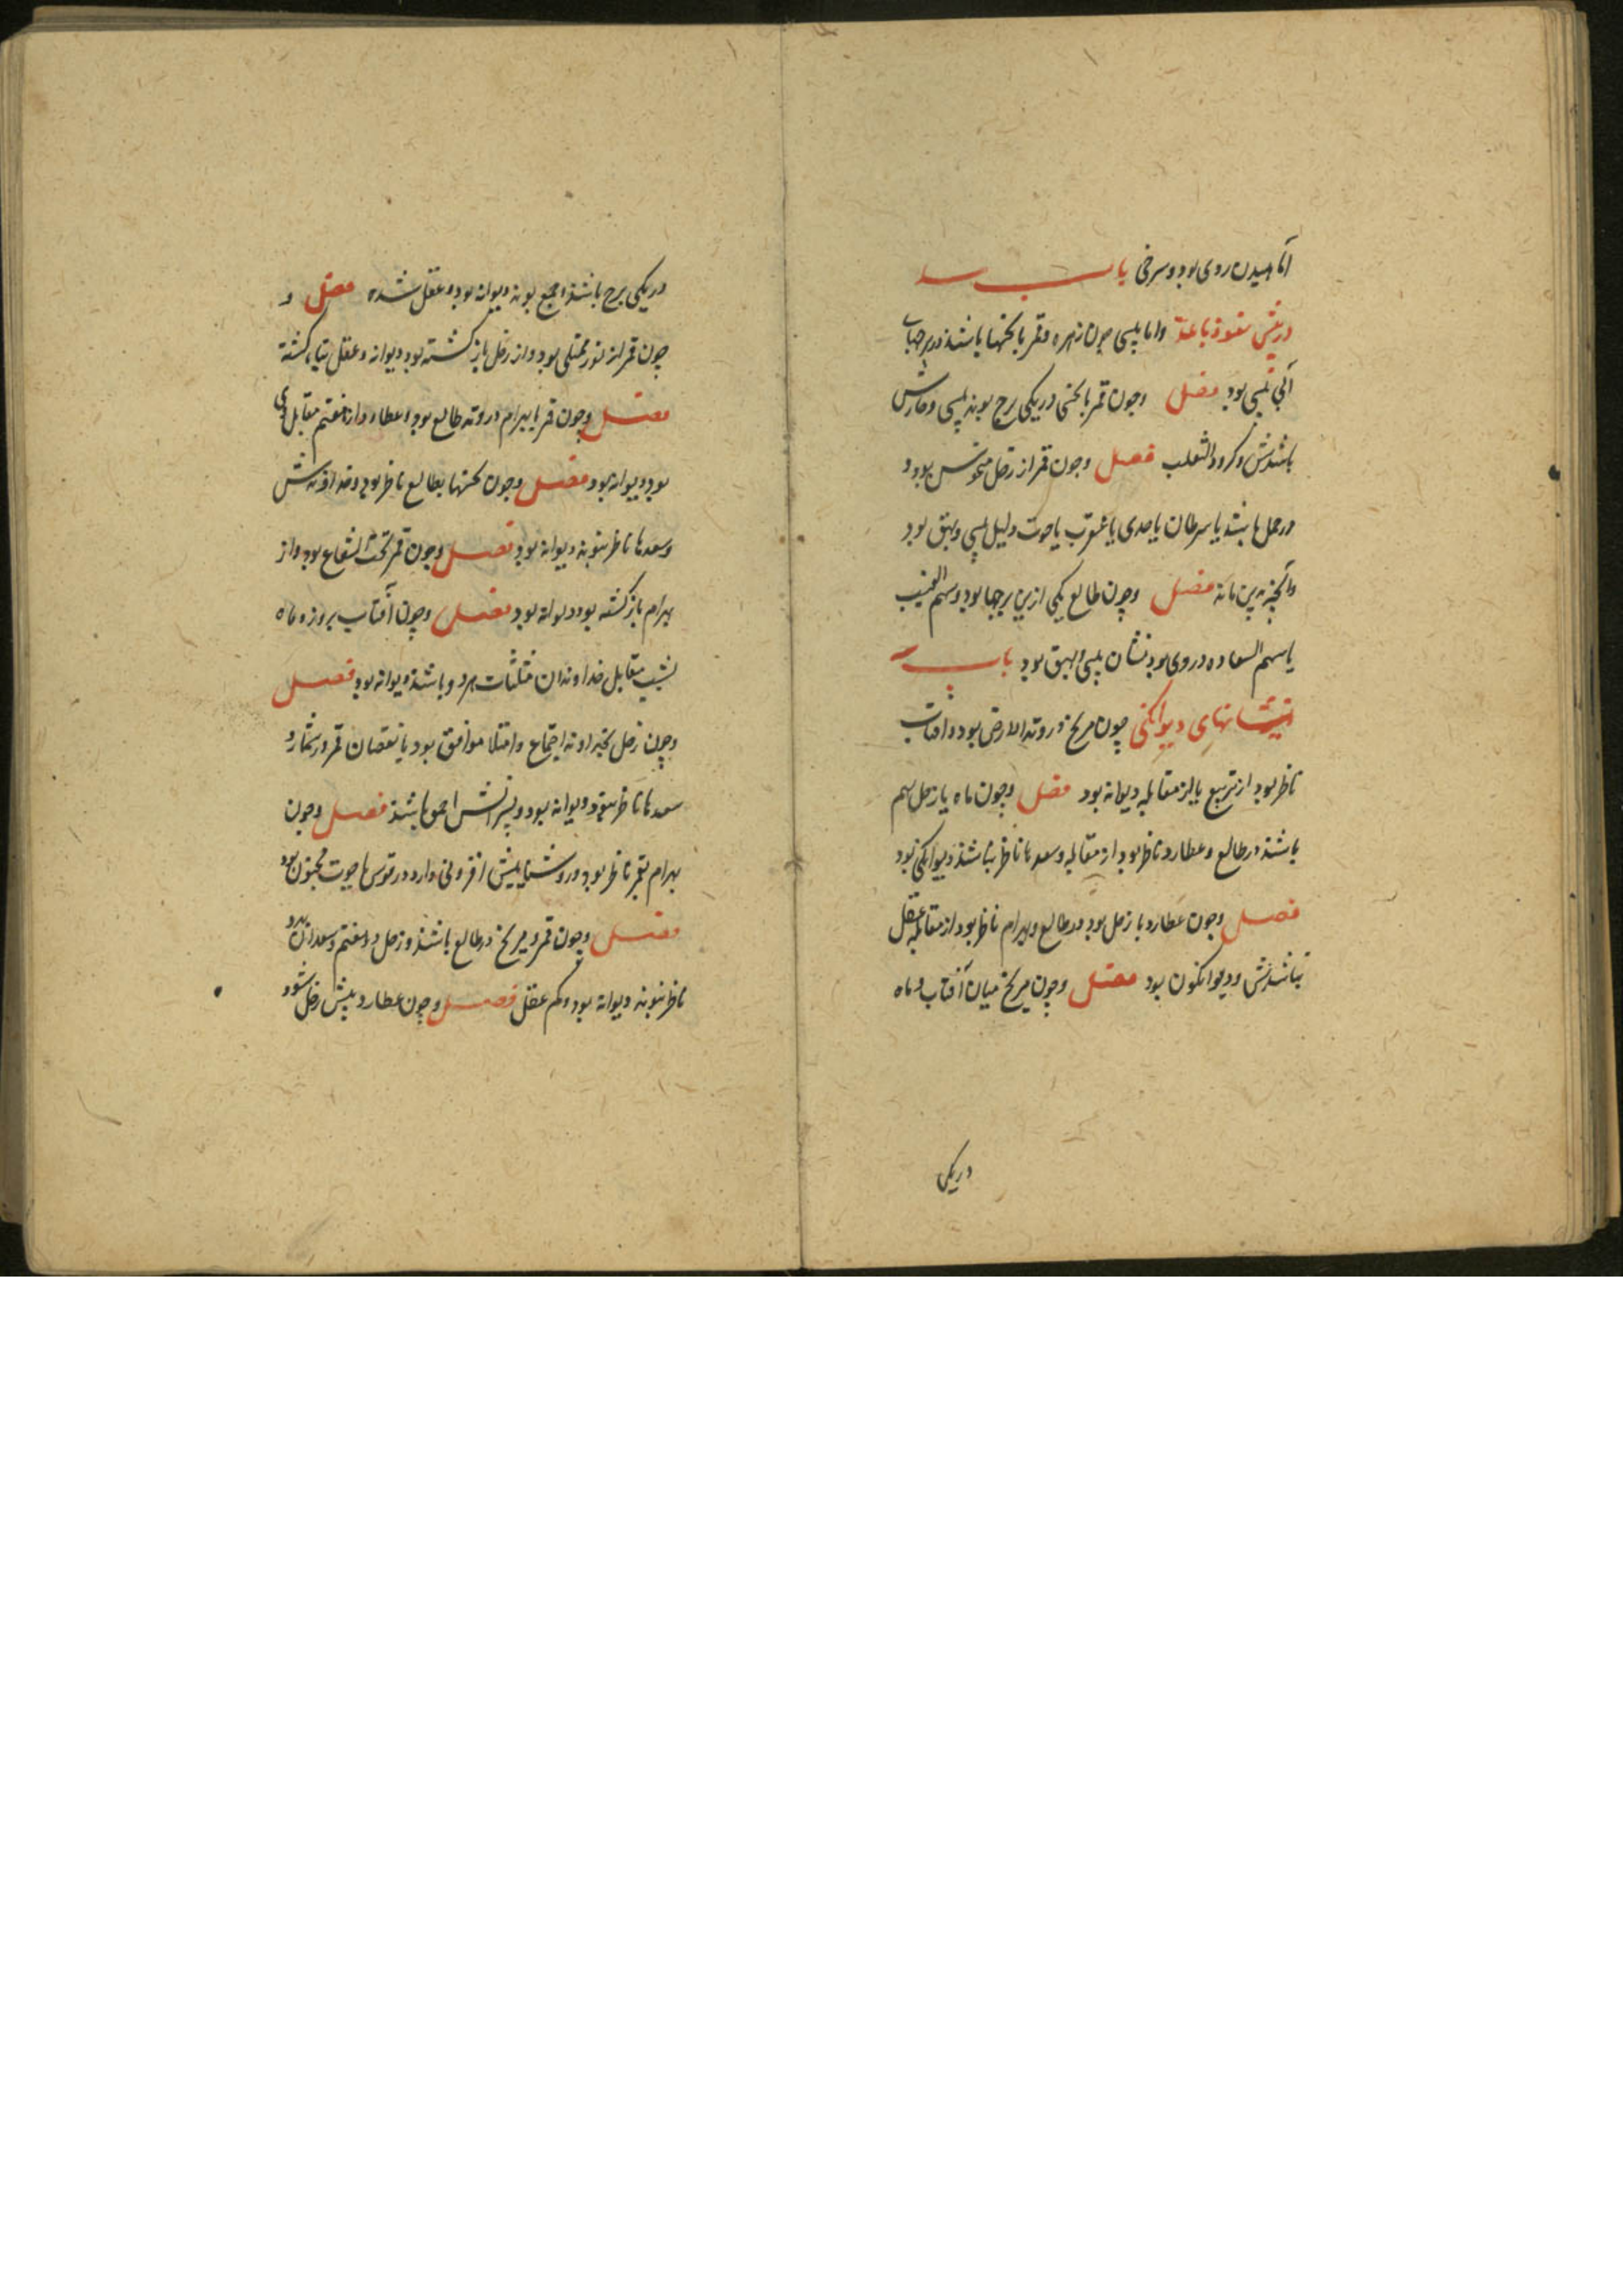 آماهیدن روی بود و سرخی باب
در پیسی نعوذ بالله واما پیسی چون زهره و قمر با نحسها باشند در برجهاء
آبی پیسی بود فصل وچون قمر با نحسی در یکی برج بوند پیسی و خارش
باشدش و کر و داء الثعلب فصل وچون قمر از زحل منحوس بود و
در حمل باشد یا سرطان یا جدی یا عقرب یا حوت دلیل پیسی و بهق بود
وآنچه بدین ماند فصل وچون طالع یکی ازین برجها بود و سهم الغیب
یا سهم السعاده در وی بود نشان پیسی و بهق بود باب
نشانهای دیوانگی چون مریخ در وتد الارض بود و افتاب
ناظر بود از تربیع یا از مقابله دیوانه بود فصل وچون ماه یا زحل بهم
باشند در طالع و عطارد ناظر بود از مقابله وسعدها ناظر نباشند دیوانگی بود
فصل وچون عطارد با زحل بود در طالع و بهرام ناظر بود از مقابله عقل
نباشدش و دیوانگون بود فصل وچون مریخ میان آفتاب و ماه
دریکی
دریکی برج باشند اجمع بوند دیوانه بود و عقل شده فصل و
چون قمر از نور ممتلی بود و از زحل بازگشته بود دیوانه و عقل تباه گشته
فصل وچون قمر با بهرام در وتد طالع بود و عطارد از هفتم مقابل وی
بود دیوانه بود فصل وچون نحسها بطالع ناظر بود و خداوندش
وسعدها ناظر نبوند دیوانه بود فصل وچون قمر تحت الشعاع بود و از
بهرام بازگشته بود دیوانه بود فصل وچون آفتاب بروز و ماه
بشب مقابل خداوندان مثلثات هر دو باشند دیوانه بود فصل
وچون زحل بخداوند اجتماع و امتلا موافق بود یا نقصان قمر در شمار و
سعدها ناظر نبود دیوانه بود و پسرانش احمق باشند فصل وچون
بهرام بقمر ناظر بود و روشنائیش افزونی دارد در قوس یا حوت مجنون بود
فصل وچون قمر و مریخ در طالع باشند و زحل در هفتم وسعدان بدو
ناظر نبوند دیوانه بود و کم عقل فصل وچون عطارد پیش زحل شود